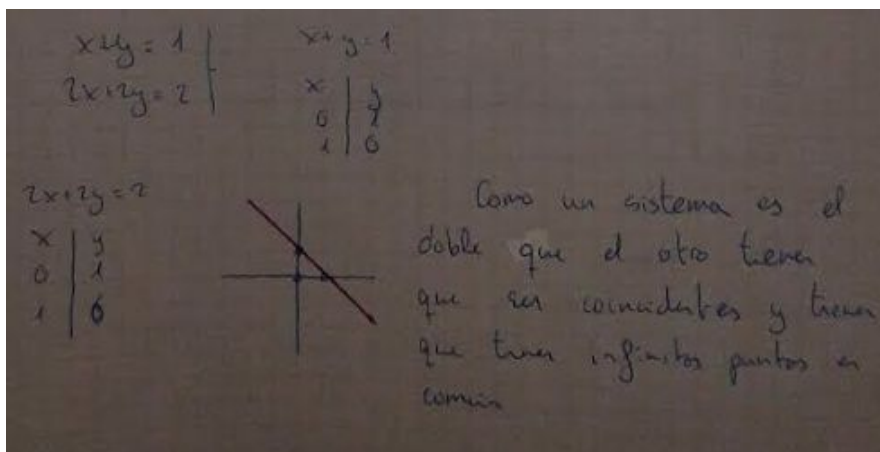 x+y=1
2x+2y=2
x+y=1
x | y
0 | 1
1 | 0
2x+2y=2
x | y
0 | 1
1 | 0
Como un sistema es el
doble que el otro tienen
que ser coincidentes y tienen
que tener infinitos puntos en
común